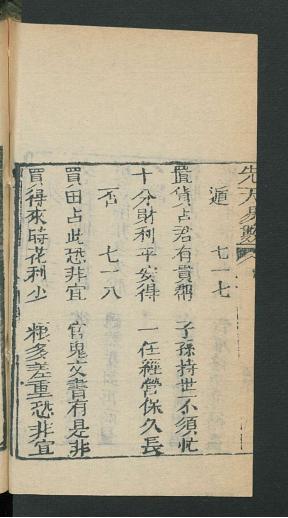 先天易數
遁　七一七
置貨占君有貴幫　子孫持世不須忙
十分財利平安得　一任經營保久長
否　七一八
買田占此恐非宜　官鬼文書有是非
買得來時花利少　糧多差重恐非宜